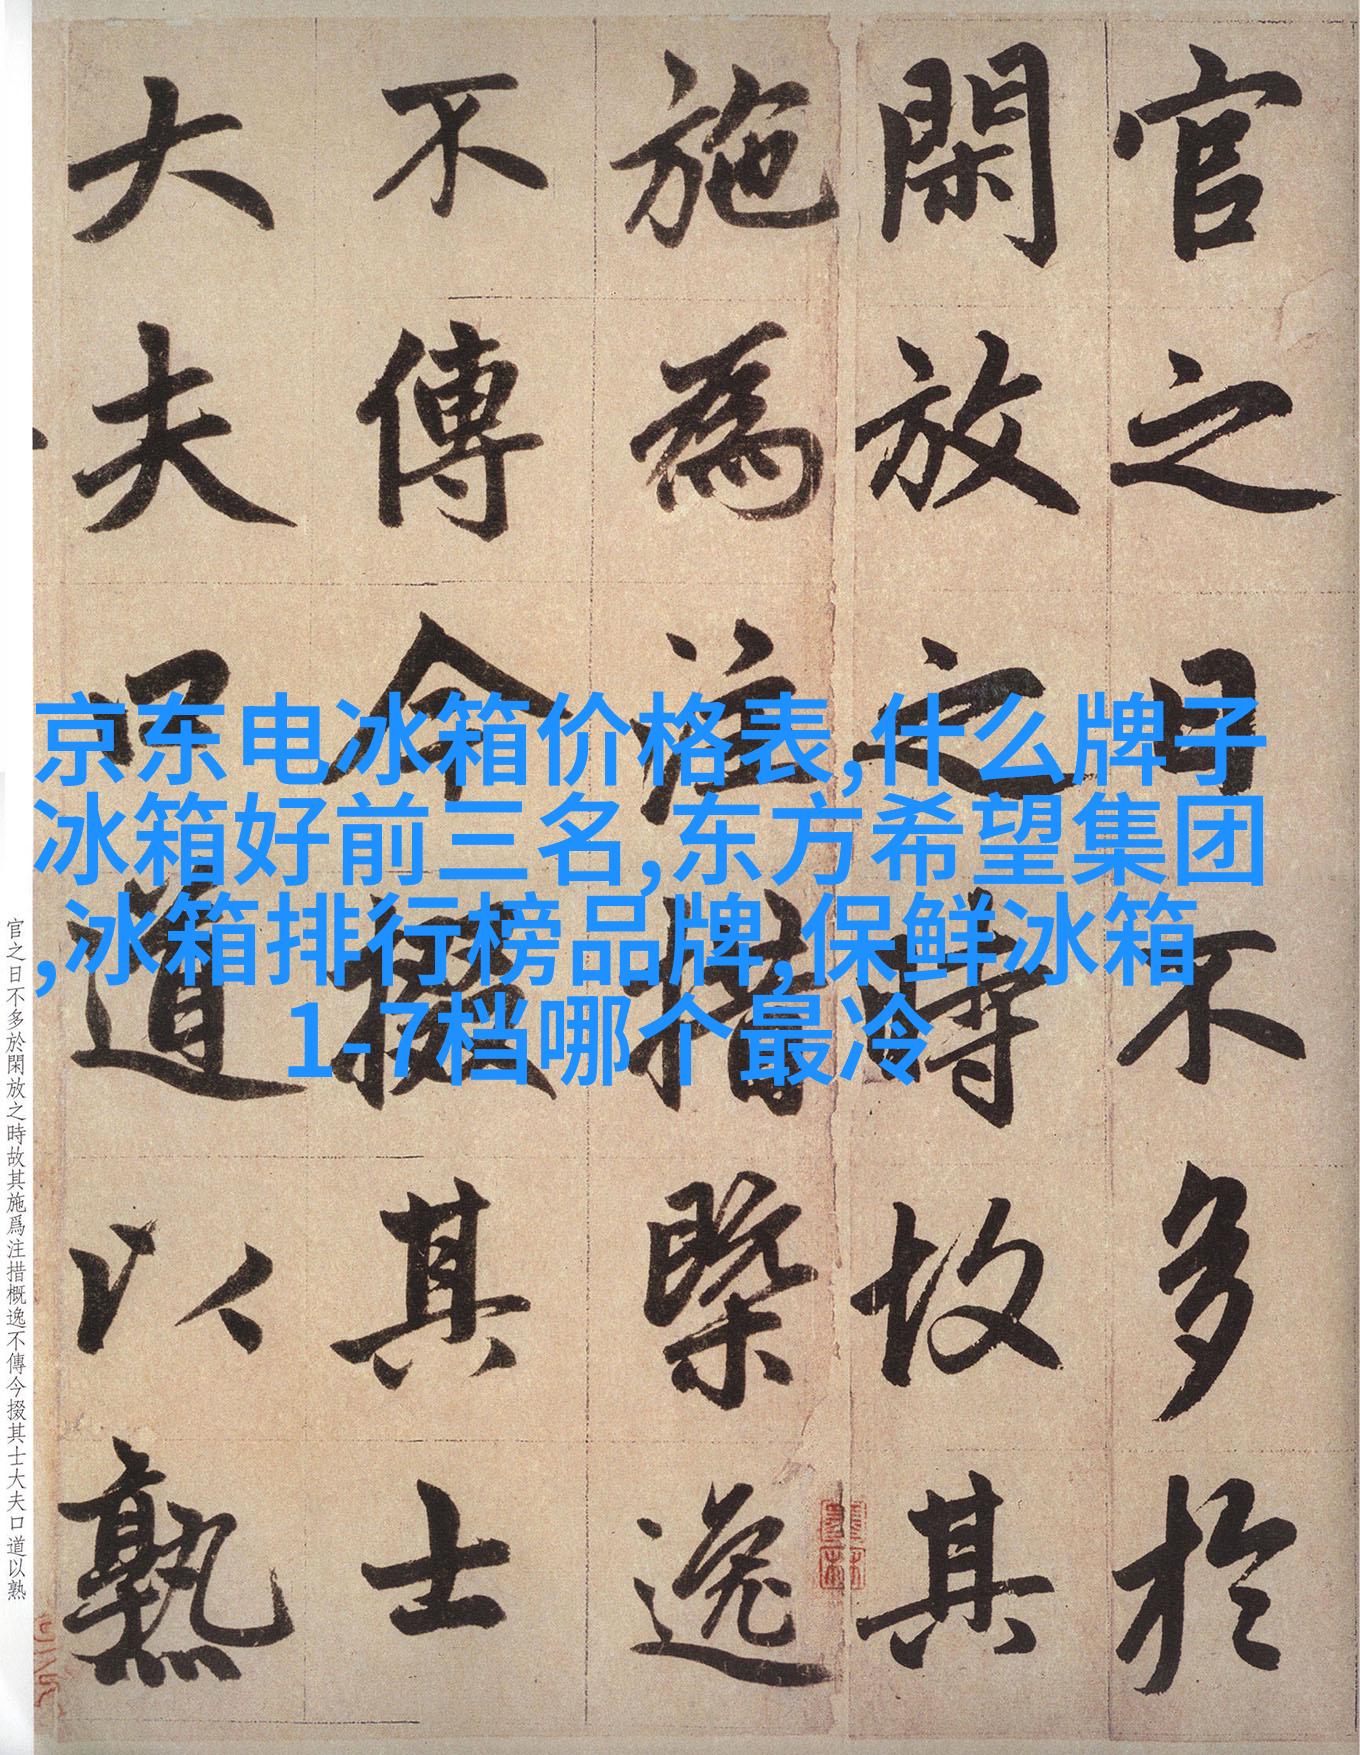 官之日不多於
閑放之時故其
施為注措槩逸
不傳今掇其士
大夫口道以熟
京东电冰箱价格表,什么牌子
冰箱好前三名,东方希望集团
,冰箱排行榜品牌,保鲜冰箱
1-7档哪个最冷
官之日不多於閑放之時故其施爲注措概逸不傳今掇其士大夫口道以熟